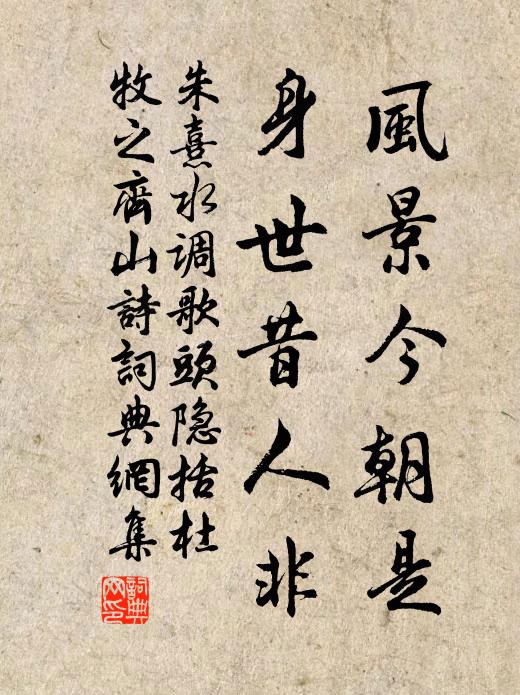 風景今朝是
身世昔人非
朱熹水调歌頭隐括杜
牧之齊山詩詞典網集
詞典网印